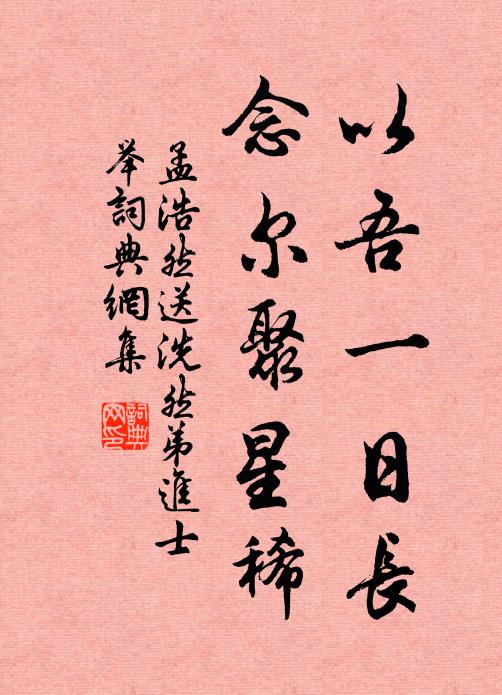 以吾一日長
念尔聚星稀
孟浩然送洗然弟進士
举詞典網集
詞典
网印